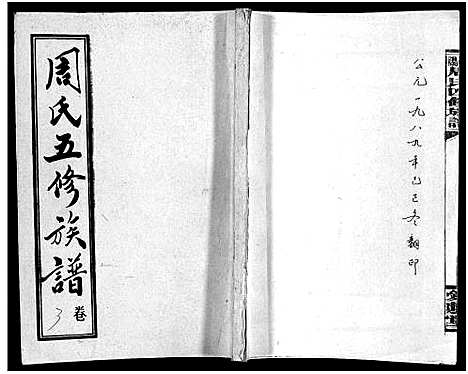 周氏五修族譜
卷
3
公元一九八九年己巳冬翻印